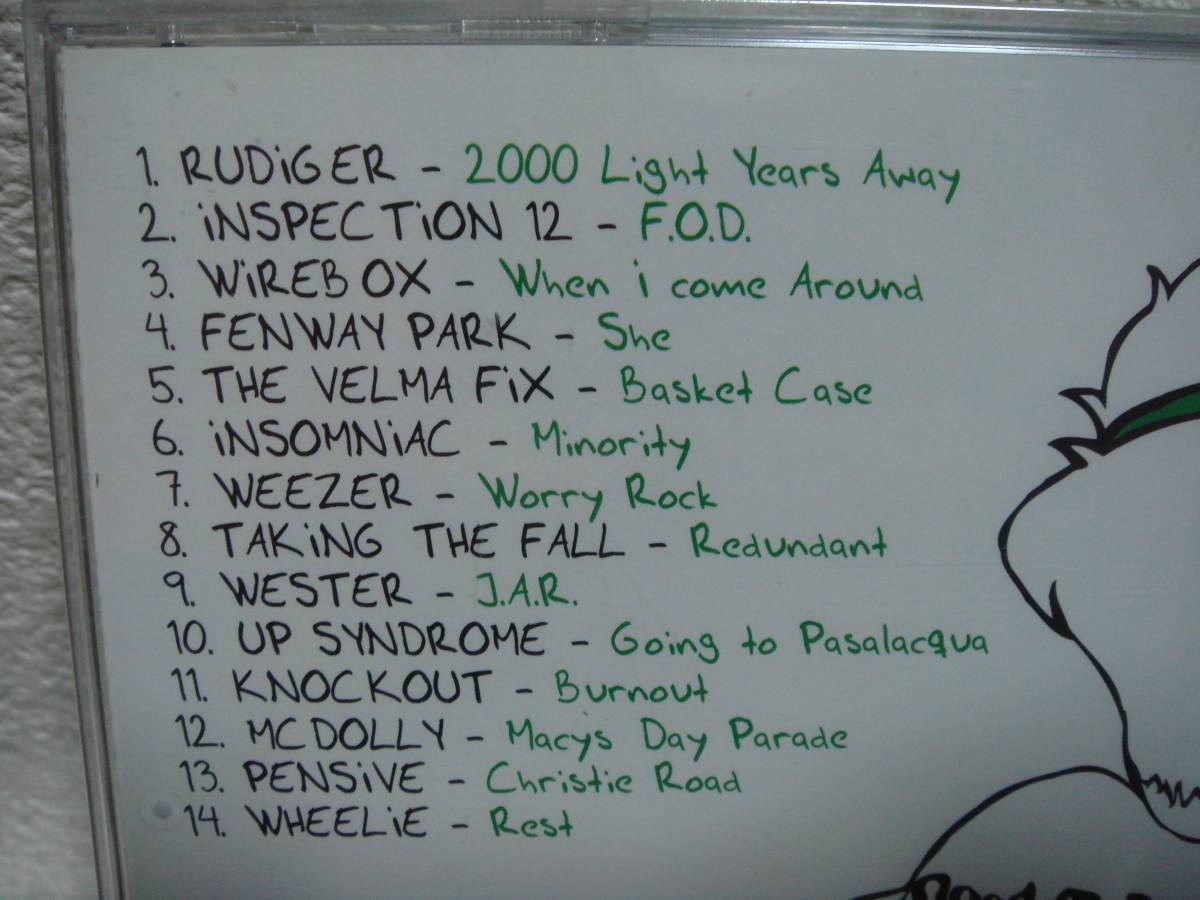 1. RUDiGER - 2000 Light Years Away
2. iNSPECTiON 12 - F.O.D.
3. WiREBOX - When i come Around
4. FENWAY PARK - She
5. THE VELMA FiX - Basket Case
6. iNSOMNiAC - Minority
7. WEEZER - Worry Rock
8. TAKiNG THE FALL - Redundant
9. WESTER - J.A.R.
10. UP SYNDROME - Going to Pasalacqua
11. KNOCKOUT - Burnout
12. MCDOLLY - Macys Day Parade
13. PENSiVE - Christie Road
14. WHEELiE - Rest